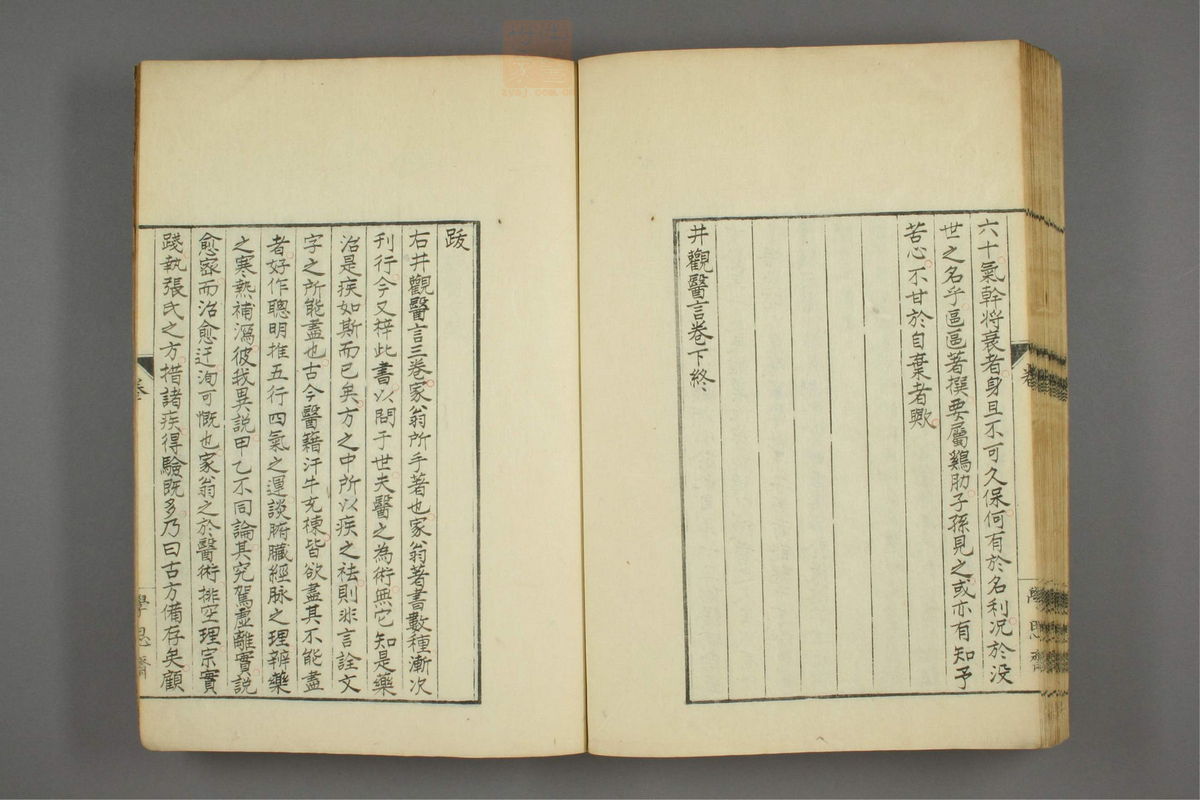 六十氣幹将衰者身且不可久保何有於名利况於没
世之名乎區區著撰要屬鷄肋子孫見之或亦有知予
苦心不甘於自棄者歟
井觀醫言卷下終
跋
右井觀醫言三卷家翁所手著也家翁著書數種漸次
刊行今又梓此書以問于世夫醫之為術無它知是藥
治是疾如斯而已矣方之中所以疾之祛則非言詮文
字之所能盡也古今醫籍汗牛充棟皆欲盡其不能盡
者好作聰明推五行四氣之運談腑臟經脉之理辨藥
之寒熱補瀉彼我異說甲乙不同論其究駕虛離實說
愈密而治愈迂洵可慨也家翁之於醫術排空理宗實
踐執張氏之方措諸疾得驗既多乃曰古方備存矣顧
學思齋